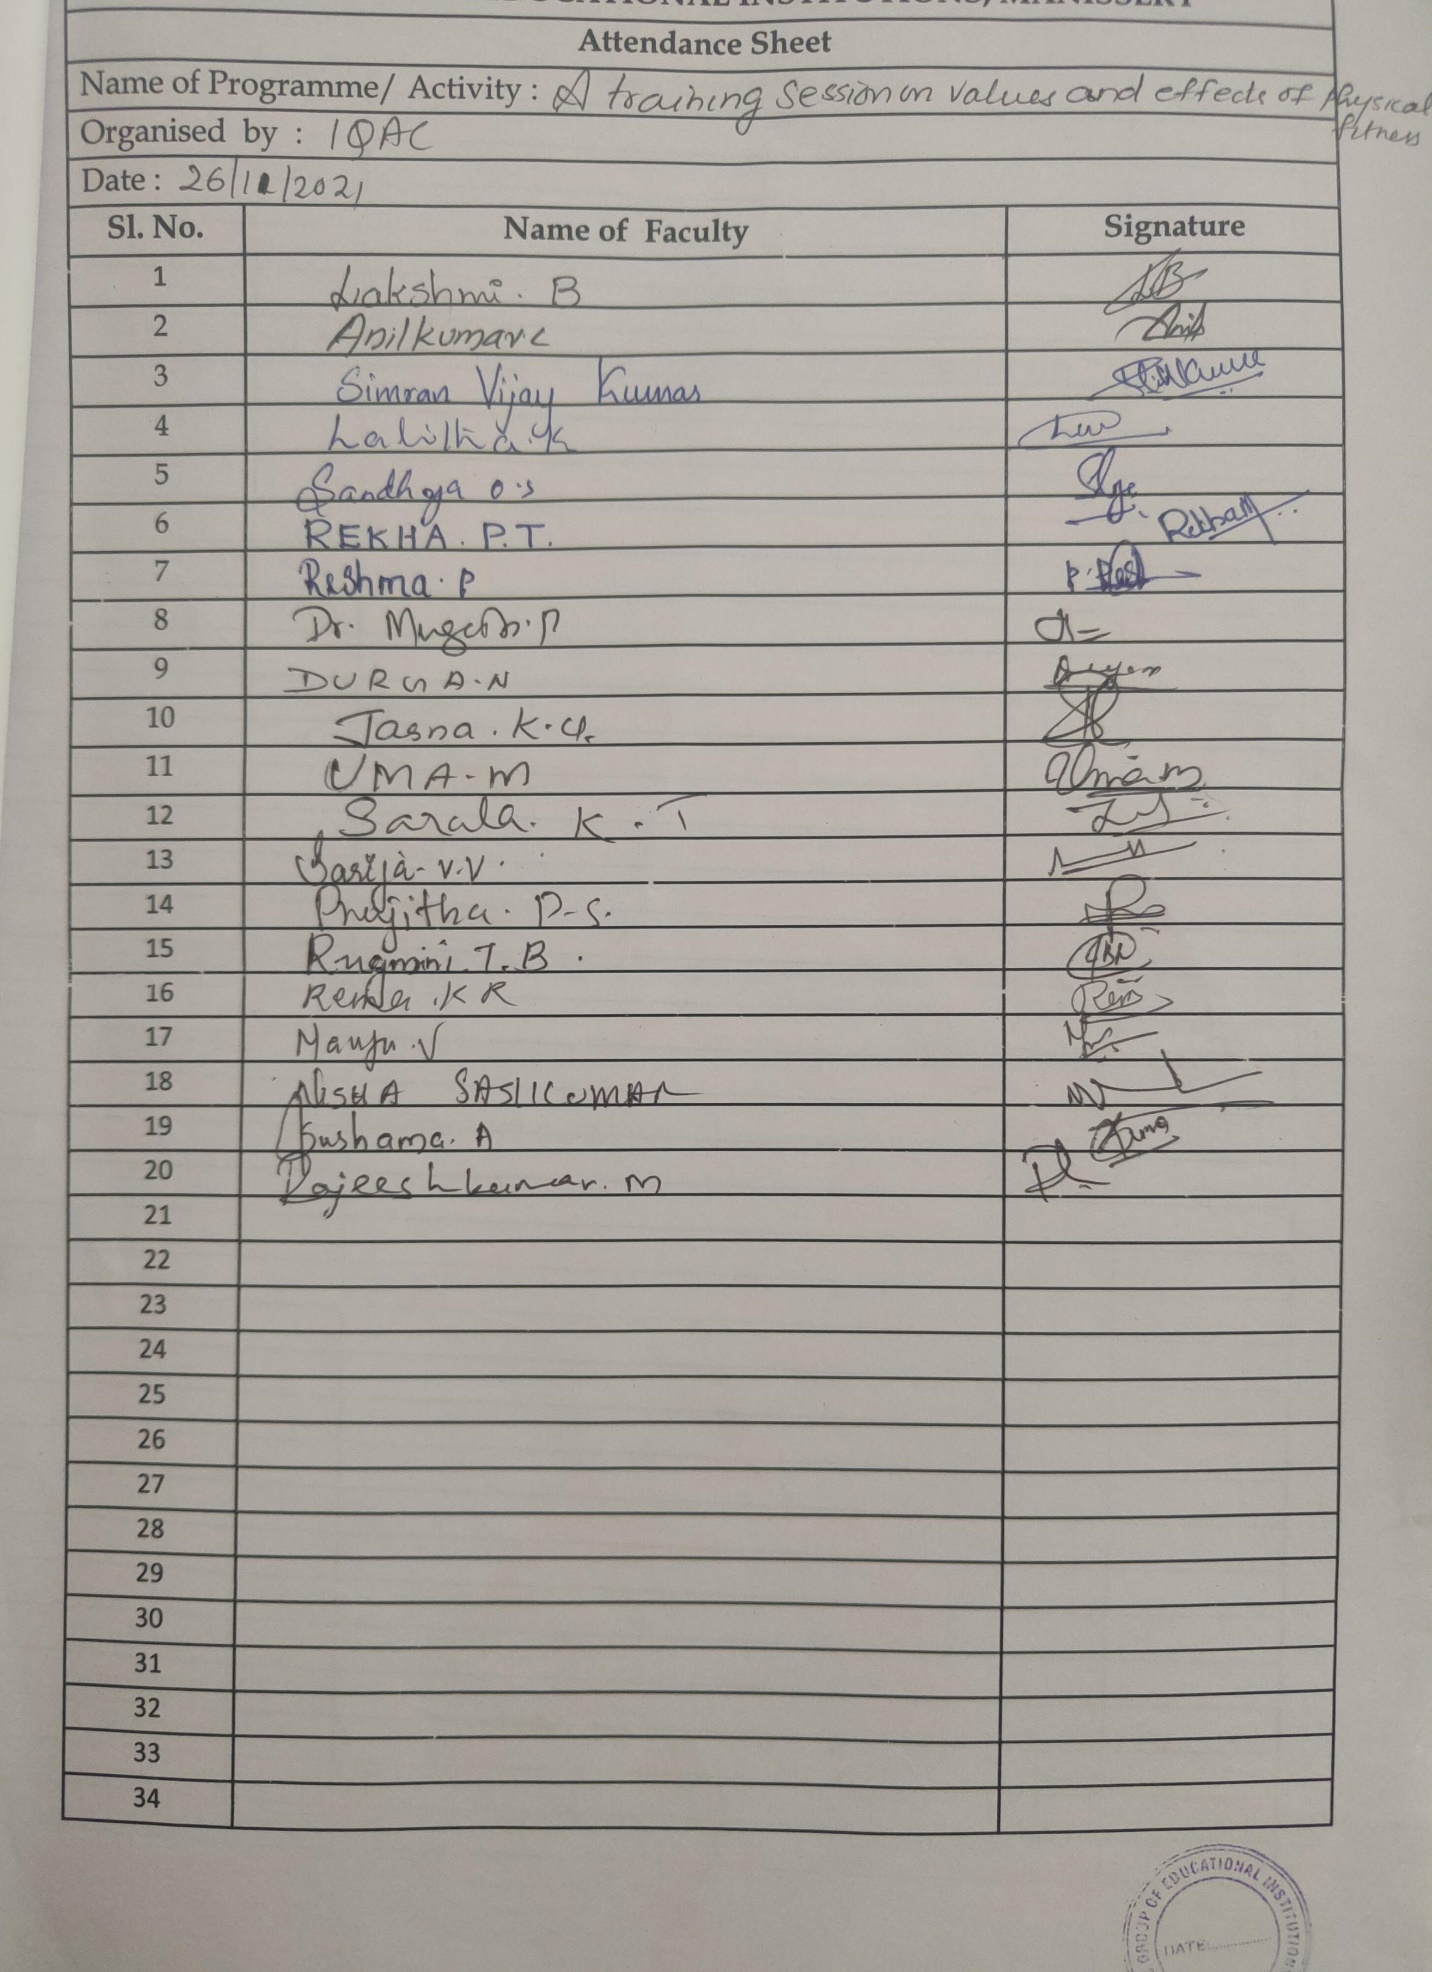 EDUCATIONAL INSTITUTIONS, MANISSERY
Attendance Sheet
Name of Programme/ Activity : A training session on values and effects of physical fitness
Organised by : IQAC
Date : 26/11/2021
Sl. No. Name of Faculty Signature
1 Lakshmi. B LB
2 Anilkumar.C Anil
3 Simran Vijay Kumar
4 Lalitha.K
5 Sandhya O.S
6 REKHA. P.T. Rekha
7 Reshma. P
8 Dr. P
9 DURGA.N
10 Jasna. K.
11 UMA.M Umam
12 Sarala. K. T
13 Sarija. V.V.
14 P.S.
15 Rugmini. T. B.
16 K R
17 Manju.V
18 NISHA SASIKUMAR
19 Sushama. A
20 Rajeeshkumar. M
21
22
23
24
25
26
27
28
29
30
31
32
33
34
GROUP OF EDUCATIONAL INSTITUTION
DATE: